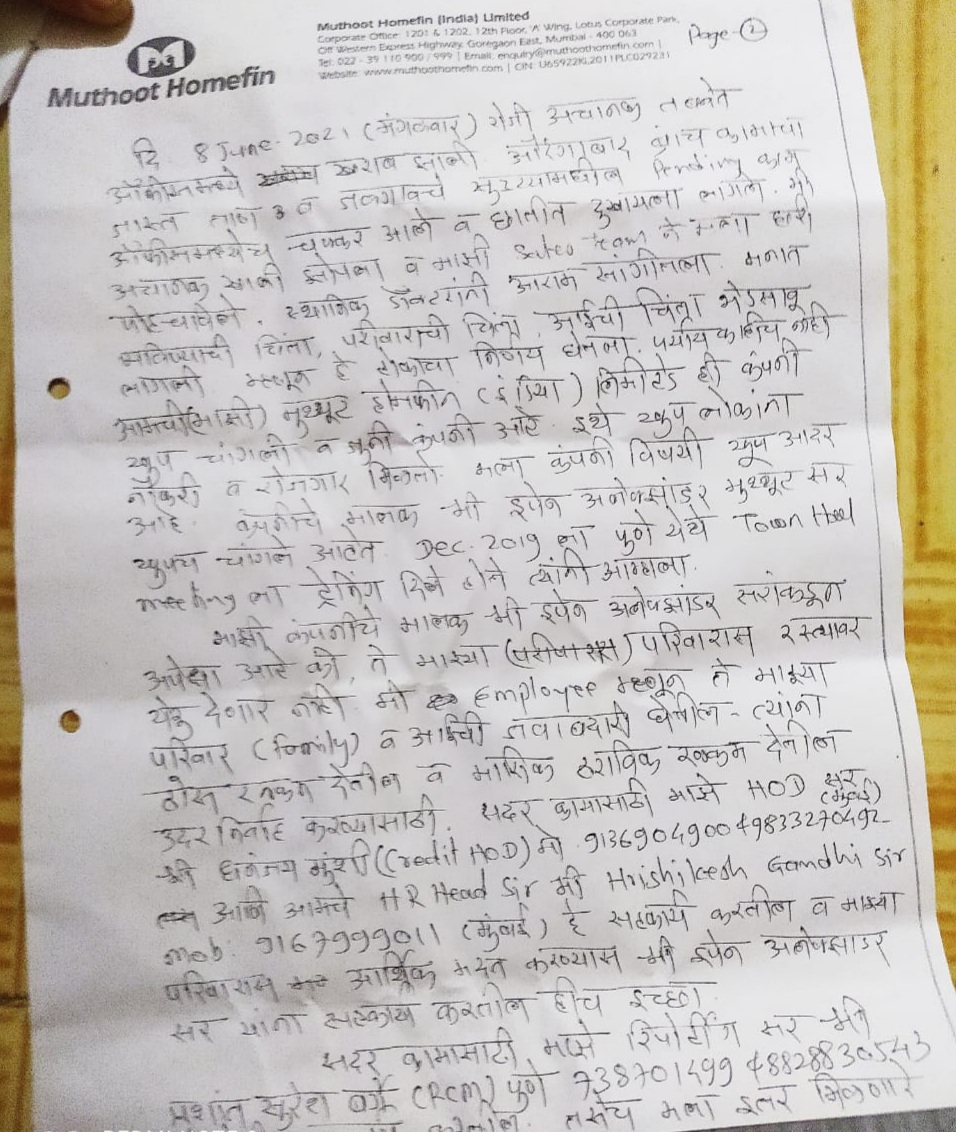 Muthoot Homefin (India) Limited
Corporate Office: 1201 & 1202, 12th Floor, 'A' Wing, Lotus Corporate Park,
Off Western Express Highway, Goregaon East, Mumbai - 400 063
Tel: 022 - 39 110 900 / 999 | Email: enquiry@muthoothomefin.com |
Website: www.muthoothomefin.com | CIN: U65922KL2011PLC029231
Muthoot Homefin
Page - 2
दि. 8 June - 2021 (मंगळवार) रोजी अचानक तब्बेत
ऑफीसमध्ये खराब झाली. औरंगाबाद ब्रांच कामाचा
जास्त ताण व जळगावचे Pending काम
ऑफीसमध्येच चक्कर आले व छातीत दुखायला लागले. मी
अचानक खाली झोपलो व माझी Sales team ने मला घरी
पोहचविले. स्थानिक डॉक्टरांनी आराम सांगीतला. मनात
चिंता, परीवाराची चिंता, आईची चिंता भेडसावू
लागली म्हणून हे टोकाचा निर्णय घेतला. पर्याय काहीच नाही
आमची(माझी) मुथ्थूट होमफीन (इंडिया) लिमीटेड ही कंपनी
खुप चांगली व जुनी कंपनी आहे. इथे खुप लोकांना
नोकरी व रोजगार मिळतो. मला कंपनी विषयी खूप आदर
आहे. कंपनीचे मालक श्री इपेन अलेक्झांडर मुथ्थूट सर
खुपच चांगले आहेत. Dec. 2019 ला पुणे येथे Town Hall
meeting ला ट्रेनिंग दिले होते त्यांनी आम्हाला.
माझी कंपनीचे मालक श्री इपेन अलेक्झांडर सरांकडून
अपेक्षा आहे की, ते माझ्या परिवारास रस्त्यावर
येवु देणार नाही. मी Employee म्हणून ते माझ्या
परिवार (family) व आईची जवाबदारी घेतील - त्यांना
ठोस रक्कम देतील व मासिक ठराविक रक्कम देतील
उदरनिर्वाह करण्यासाठी. सदर कामासाठी माझे HOD सर
(मुंबई)
श्री धनंजय मुंशी (Credit HOD) मो. 9136904900 49833270492
आणि आमचे HR Head Sir श्री Hrishikesh Gandhi Sir
mob: 9167999011 (मुंबई) हे सहकार्य करतील व माझ्या
परिवारास आर्थिक मदत करण्यास श्री इपेन अलेक्झांडर
सर यांना सहकार्य करतील हीच इच्छा.
सदर कामासाठी, माझे रिपोर्टींग सर श्री
प्रशांत सुरेश (RCM) पुणे 738701499 48828830543
करतील. तसेच मला इतर मिळणारे